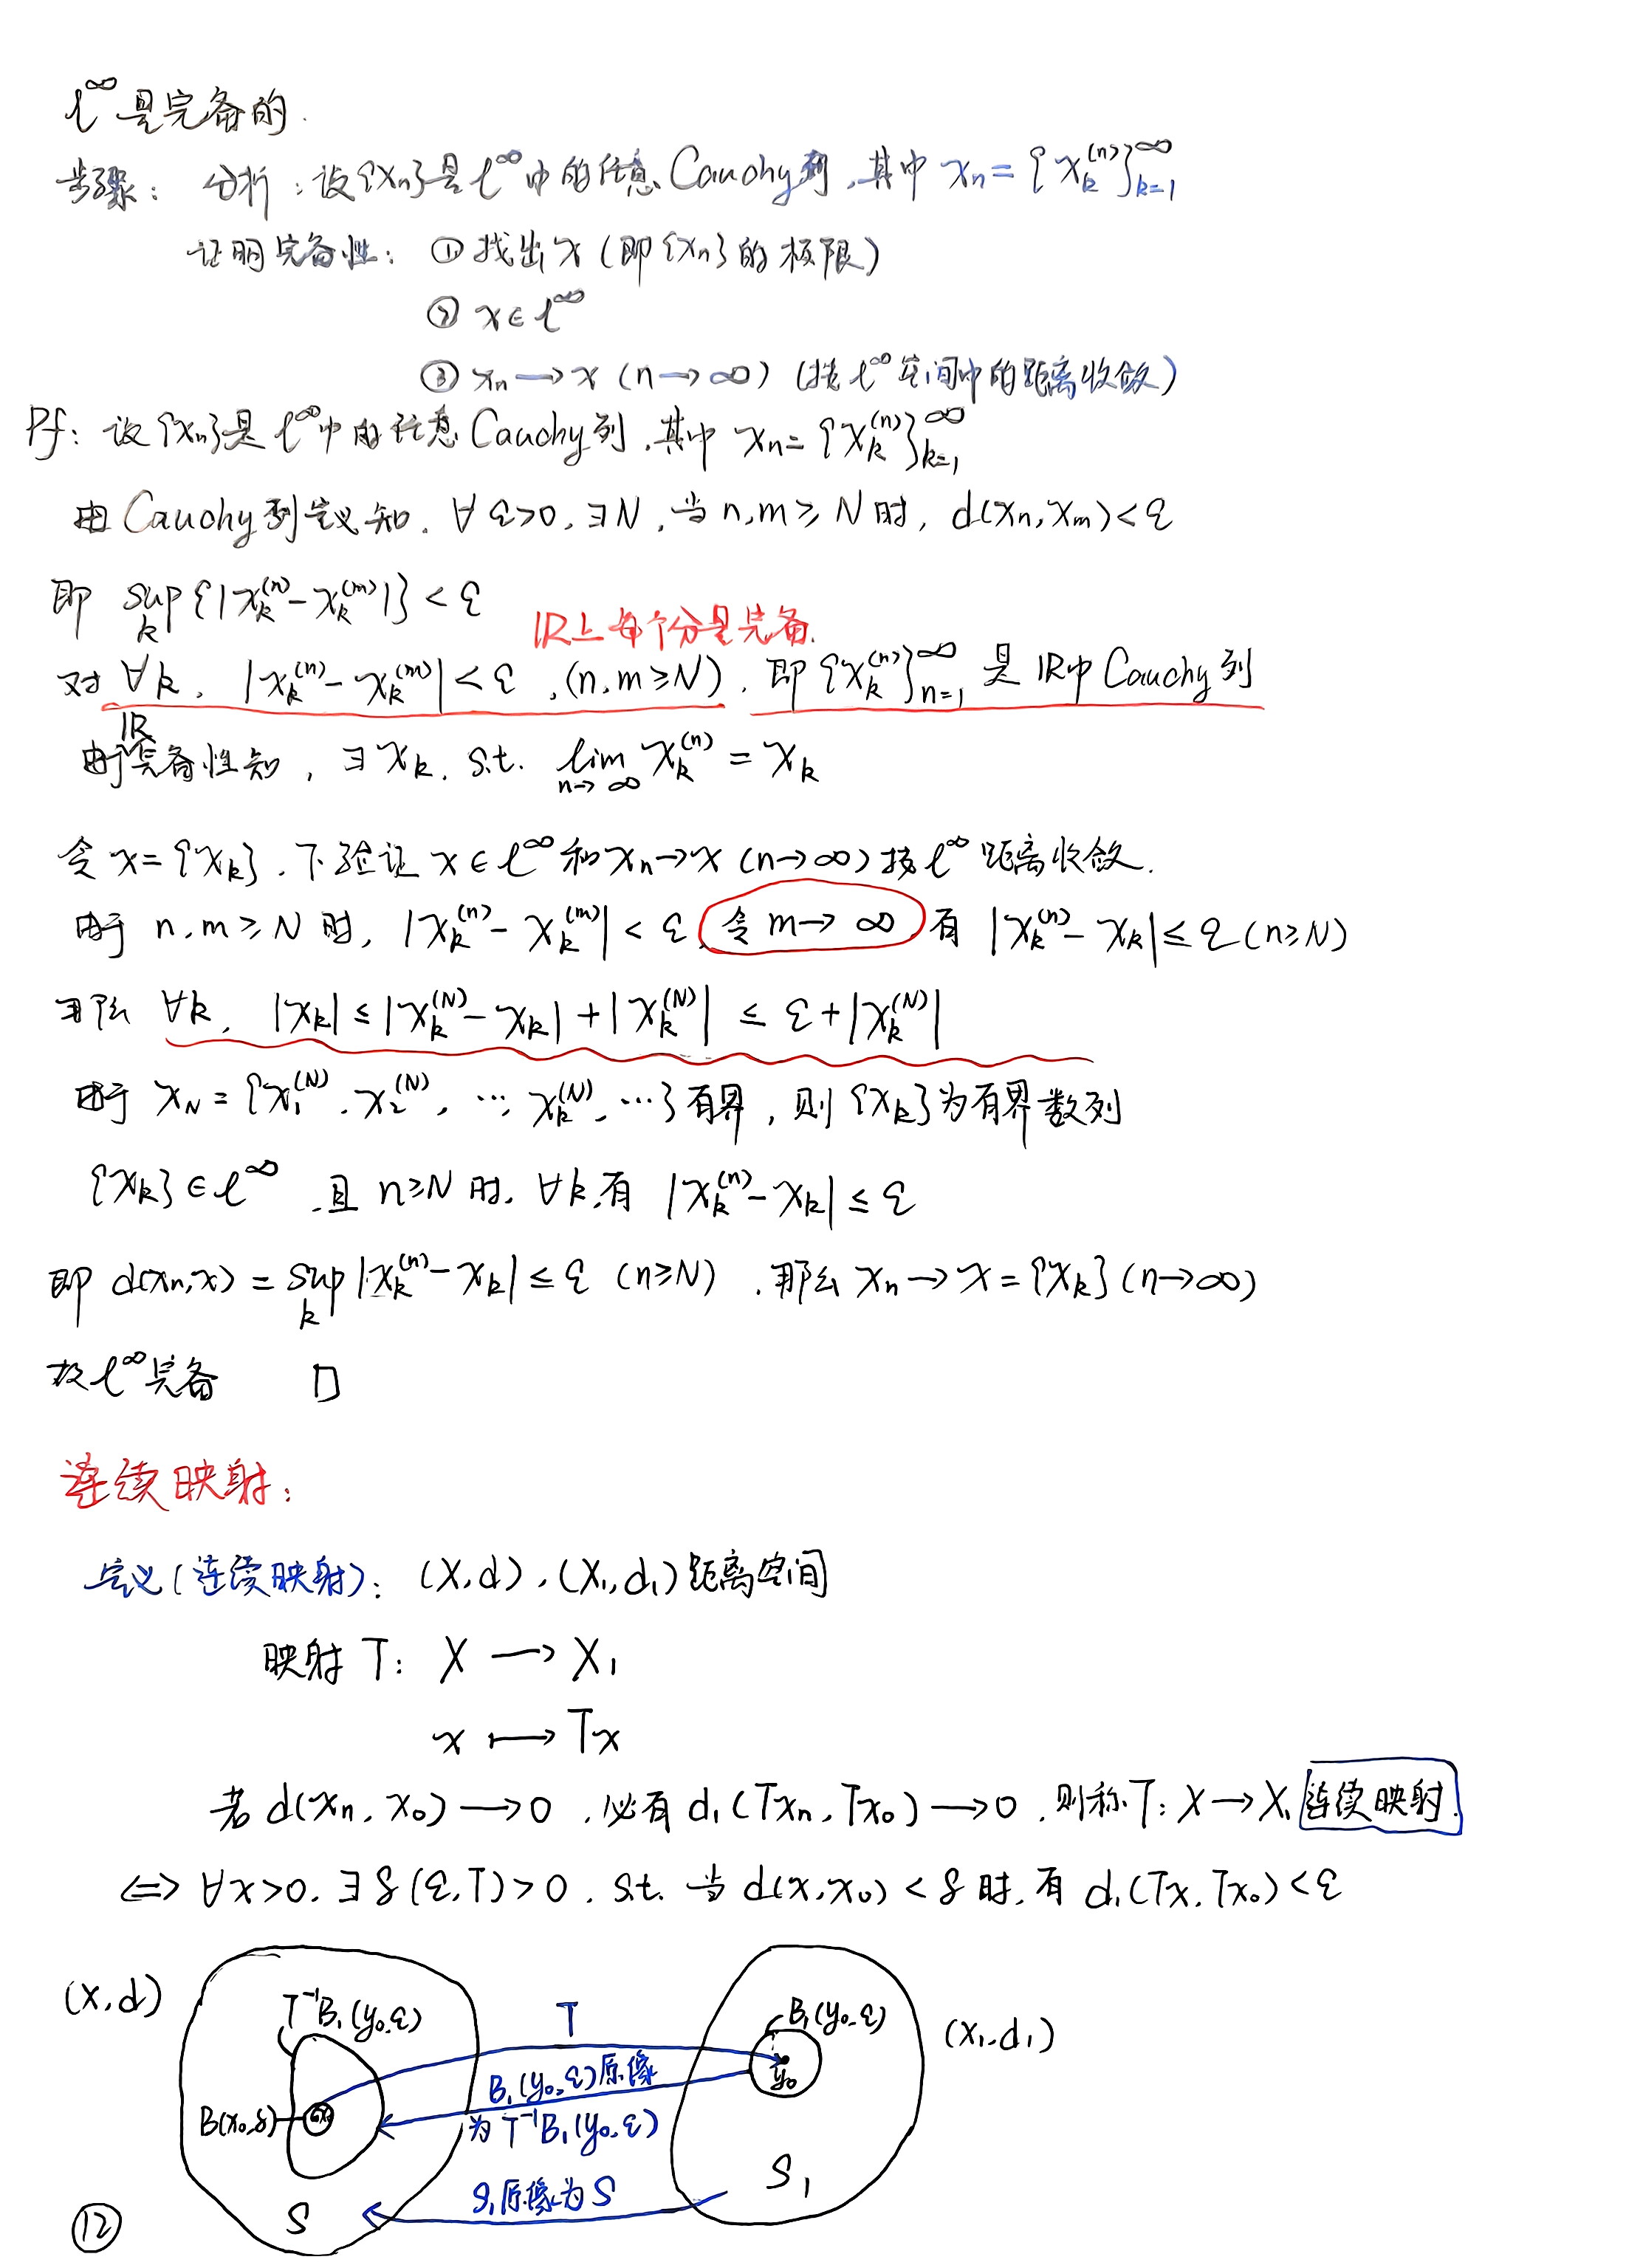 l^∞是完备的.
步骤: 分析:设{xn}是l^∞中的任意Cauchy列,其中 xn={x_k^{(n)}}_{k=1}^∞
证明完备性: ①找出x(即{xn}的极限)
② x∈l^∞
③ xn→x (n→∞) (按l^∞空间中的距离收敛)
Pf: 设{xn}是l^∞中的任意Cauchy列,其中 xn={x_k^{(n)}}_{k=1}^∞
由Cauchy列定义知, ∀ε>0, ∃N, 当n,m≥N时, d(xn,xm)<ε
即 sup_k{|x_k^{(n)}-x_k^{(m)}|}<ε
IR上每个分是完备.
对∀k, |x_k^{(n)}-x_k^{(m)}|<ε, (n,m≥N), 即{x_k^{(n)}}_{n=1}^∞是IR中Cauchy列
由于IR完备性知, ∃x_k, s.t. lim_{n→∞} x_k^{(n)}=x_k
令x={x_k}, 下验证x∈l^∞和xn→x (n→∞)按l^∞距离收敛.
由于 n,m≥N时, |x_k^{(n)}-x_k^{(m)}|<ε, 令m→∞ 有 |x_k^{(n)}-x_k|≤ε (n≥N)
那么 ∀k, |x_k|≤|x_k^{(N)}-x_k|+|x_k^{(N)}| ≤ ε+|x_k^{(N)}|
由于 x_N={x_1^{(N)}, x_2^{(N)}, …, x_k^{(N)}, …}有界, 则{x_k}为有界数列
{x_k}∈l^∞, 且 n≥N时, ∀k,有 |x_k^{(n)}-x_k|≤ε
即 d(xn,x)=sup_k|x_k^{(n)}-x_k|≤ε (n≥N), 那么xn→x={x_k}(n→∞)
故l^∞完备 □
连续映射:
定义(连续映射): (X,d), (X₁,d₁)距离空间
映射T: X → X₁
x ↦ Tx
若d(xn,x₀)→0, 必有d₁(Txn,Tx₀)→0, 则称T: X→X₁ 连续映射.
⟺ ∀x>0, ∃δ(ε,T)>0, s.t. 当d(x,x₀)<δ时,有d₁(Tx,Tx₀)<ε
(X,d)
T⁻¹B₁(y₀,ε)
T
B₁(y₀,ε)
(X₁,d₁)
B₁(y₀,ε)原像
y₀
B(x₀,δ)
x₀
为T⁻¹B₁(y₀,ε)
S₁
S₁原像为S
S
⑫